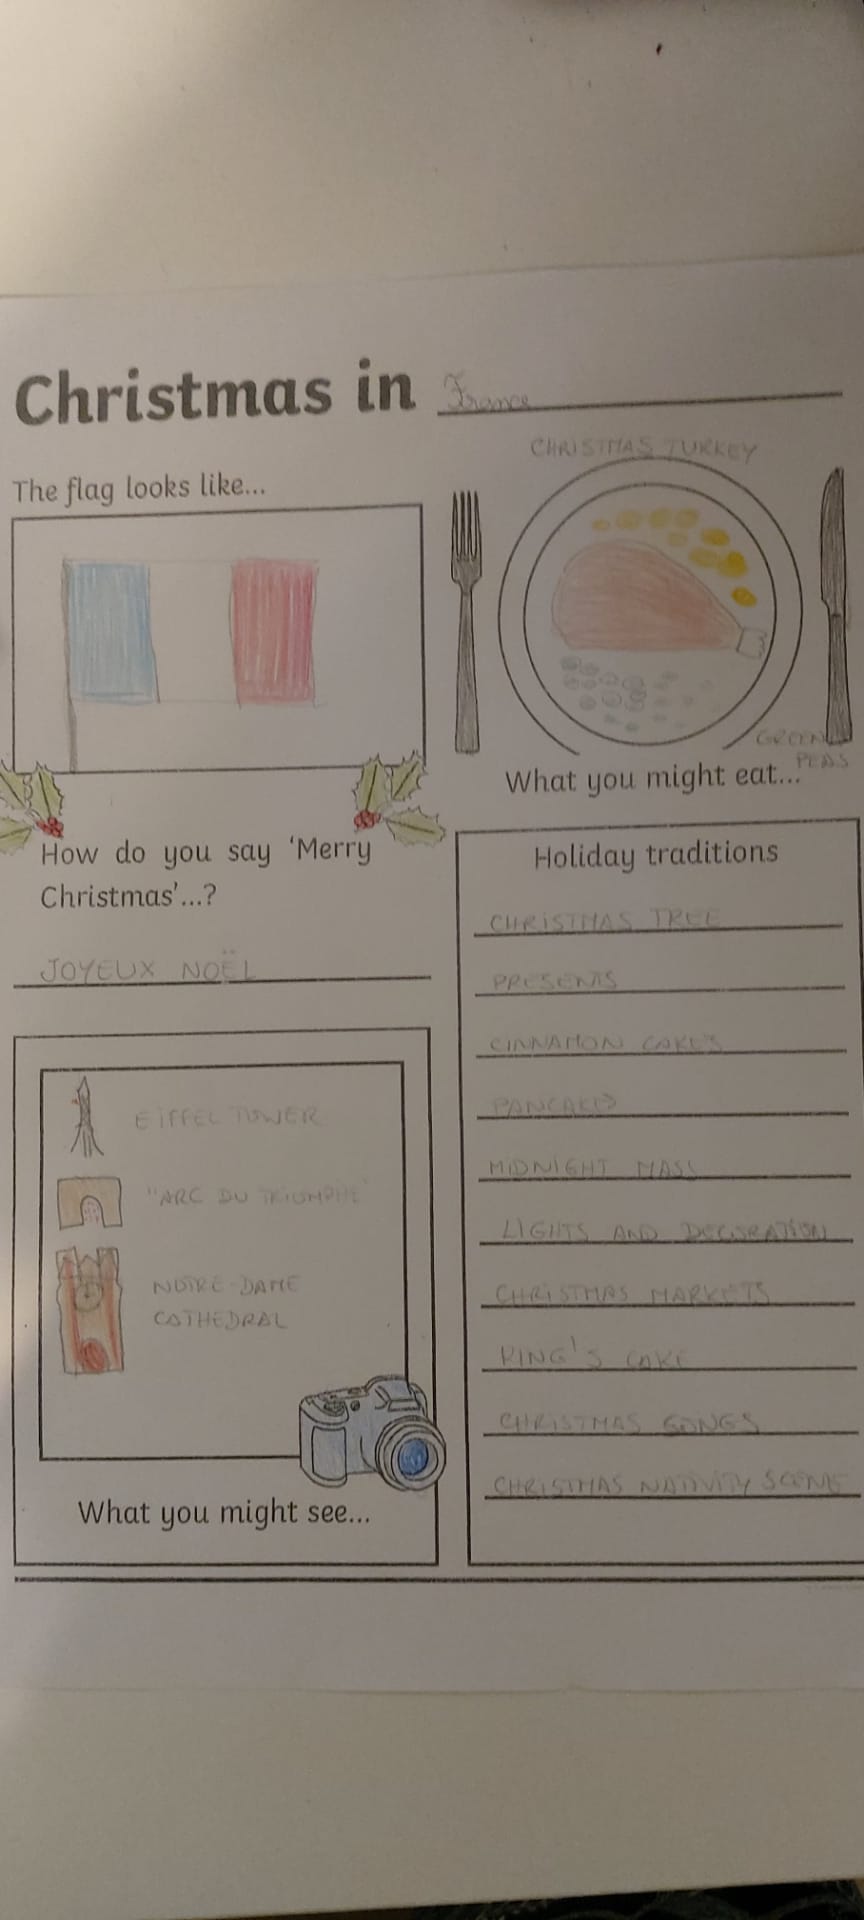 Christmas in France
The flag looks like...
CHRISTMAS TURKEY
GREEN
PEAS
What you might eat...
How do you say ‘Merry
Christmas’...?
JOYEUX NOËL
EIFFEL TOWER
"ARC DU TRIOMPHE"
NOTRE-DAME
CATHEDRAL
What you might see...
Holiday traditions
CHRISTMAS TREE
PRESENTS
CINNAMON CAKES
PANCAKES
MIDNIGHT MASS
LIGHTS AND DECORATION
CHRISTMAS MARKETS
KING'S CAKE
CHRISTMAS SONGS
CHRISTMAS NATIVITY SCENE